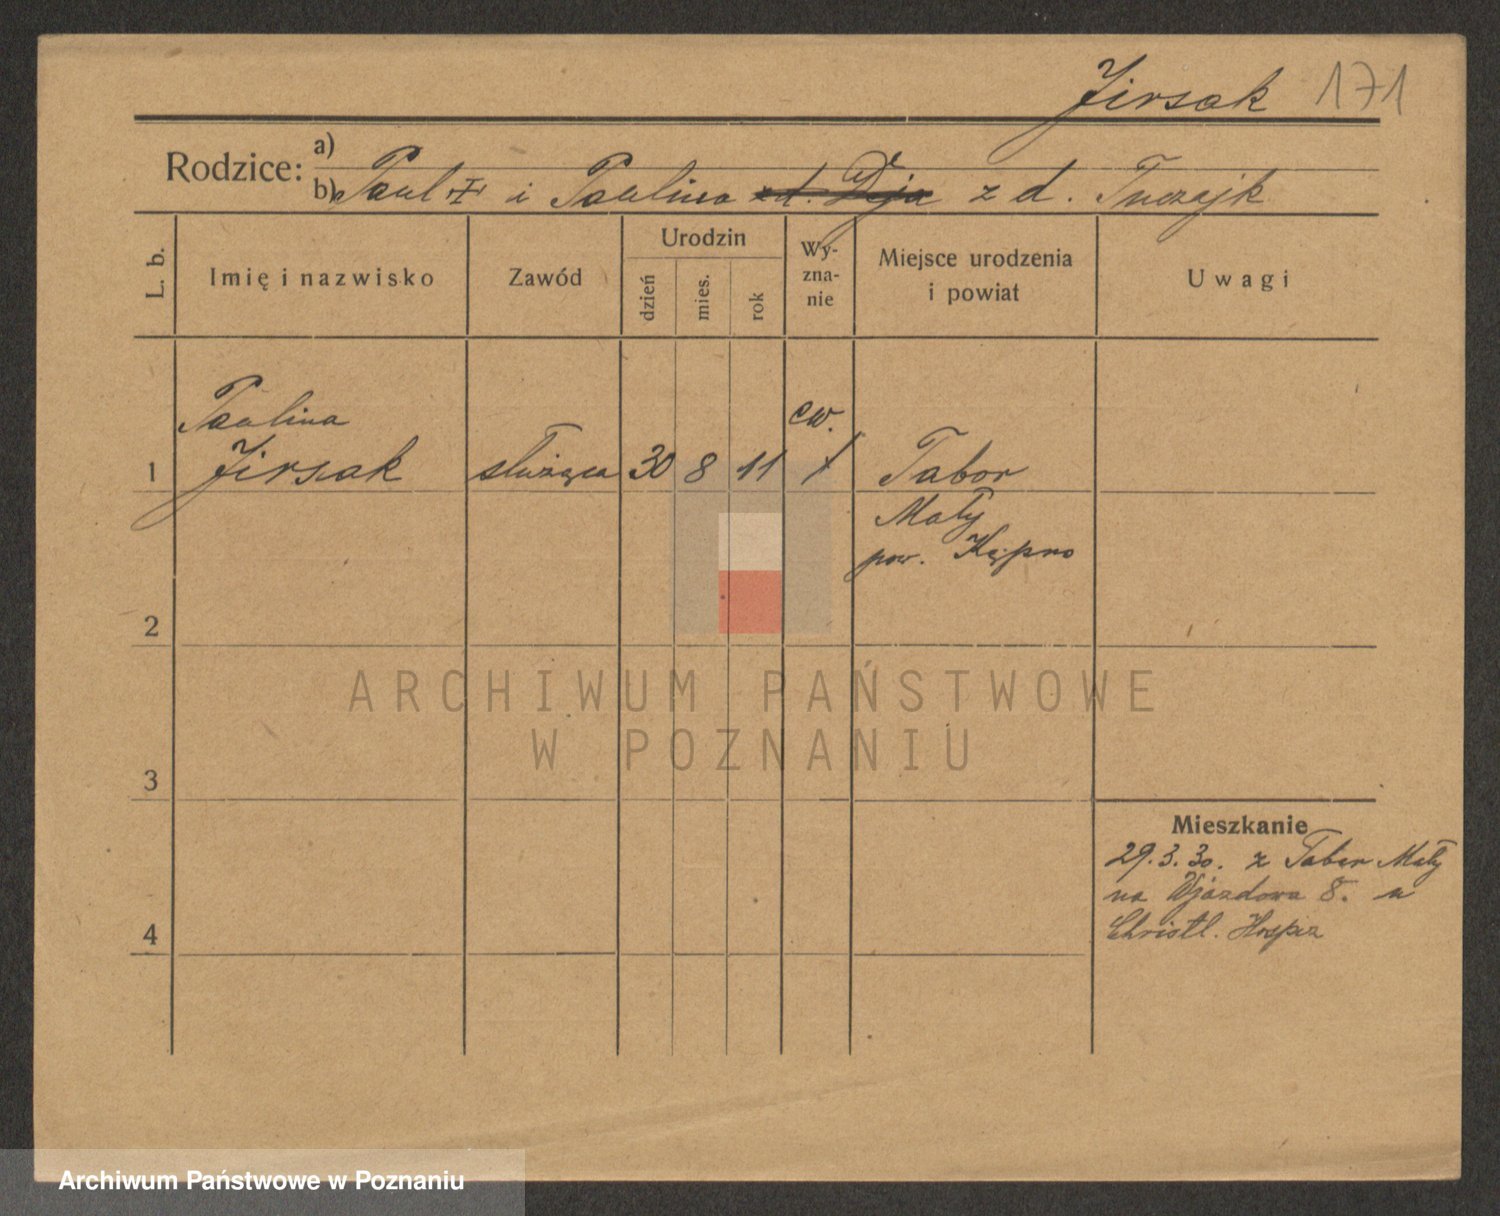 Jirsak 171
Rodzice: a)
b) Paul i Paulina z d. Dja z d. Tuczajk
L. b. Imię i nazwisko Zawód Urodzin dzień mies. rok Wy-zna-nie Miejsce urodzenia i powiat Uwagi
Paulina ew.
1 Jirsak służąca 30 8 11 Tabor
Mały
pow. Kępno
2
ARCHIWUM PAŃSTWOWE
W POZNANIU
3
Mieszkanie
29.3.30. z Tabor Mały
na Wjazdowa 8. u
Christl. Hospiz
4
Archiwum Państwowe w Poznaniu